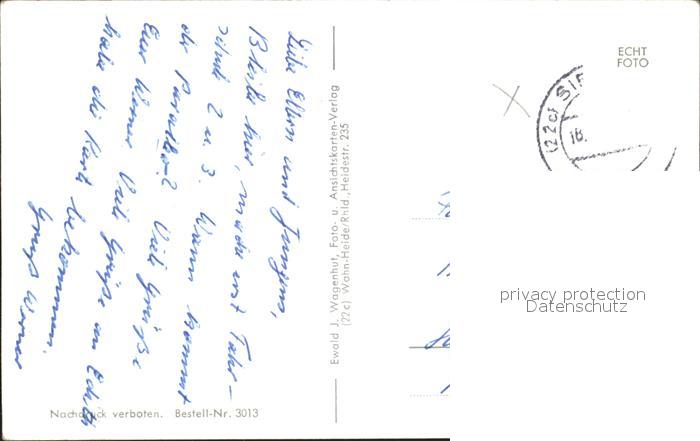 Liebe Eltern und Jungens,
Bleibe hier, mache erst Fahr-
2 u. 3. Wann kommt
die Viele Grüße
Euer Werner. Viele Grüße an Edith
Habe die Karte bekommen.
Gruß Werner
Ewald J. Wagenhut, Foto- u. Ansichtskarten-Verlag
(22c) Wahn-Heide/Rhld., Heidestr. 235
Nachdruck verboten. Bestell-Nr. 3013
ECHT
FOTO
(22c) SIE
18.
privacy protection
Datenschutz